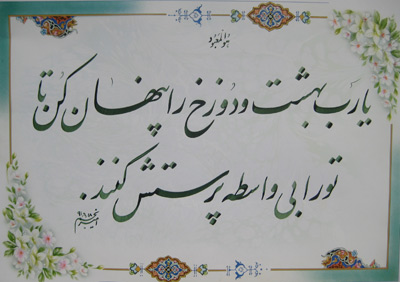 هوالمعبود
یارب بهشت و دوزخ را پنهان کن تا
تو را بی واسطه پرستش کنند.